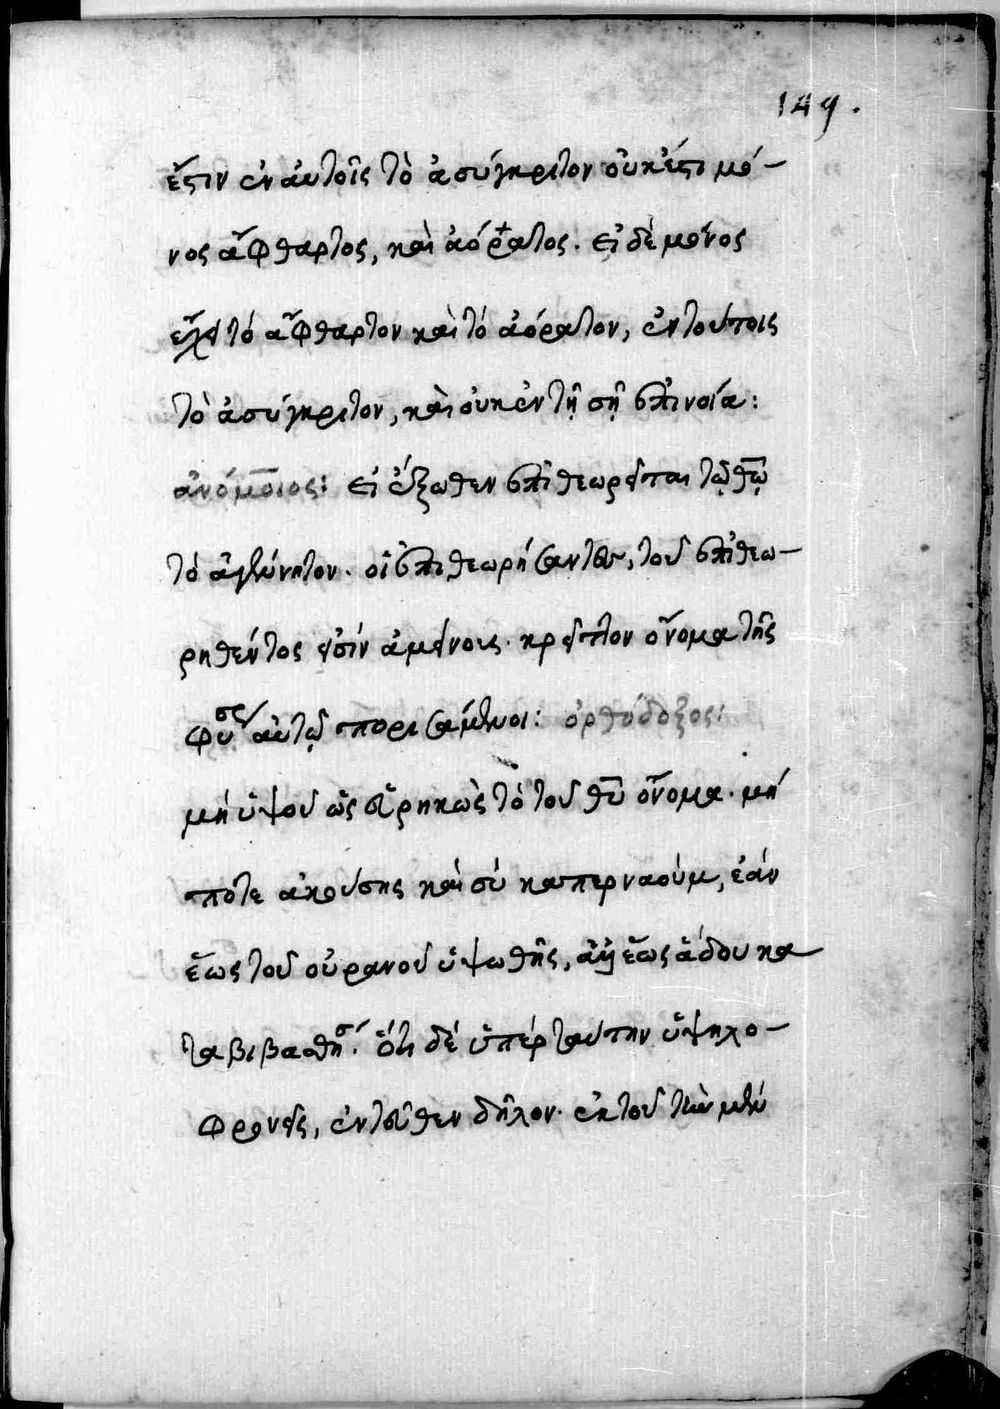 149.
ἔστιν ἐν αὐτοῖς τὸ ἀσύγκριτον οὐκέτι μό-
νος ἄφθαρτος, καὶ ἀόρατος. εἰ δὲ μόνος
ἔχει τὸ ἄφθαρτον καὶ τὸ ἀόρατον, ἐν τούτοις
τὸ ἀσύγκριτον, καὶ οὐκ ἐν τῇ σῇ ἐπινοία:
ἀνόμοιος: εἰ ἔξωθεν ἐπιθεωρεῖται τῷ θῷ
τὸ ἀγέννητον. οἱ ἐπιθεωρήσαντες, τοῦ ἐπιθεω-
ρηθέντος εἰσὶν ἀμείνους. κρεῖττον ὄνομα τῆς
φύσεως αὐτῷ πορισάμενοι: ὀρθόδοξος:
μὴ ὑψοῦ ὡς εὑρηκὼς τὸ τοῦ θῦ ὄνομα. μή
ποτε ἀκούσης καὶ σὺ καπερναούμ, ἐάν
ἕως τοῦ οὐρανοῦ ὑψωθῆς, ἕως ἅδου κα
ταβιβασθήσῃ. ὅτι δὲ ὑπὲρ ταύτην ὑψηλο-
φρονεῖς, ἐντεῦθεν δῆλον. ἐκ τοῦ τὴν μὲν